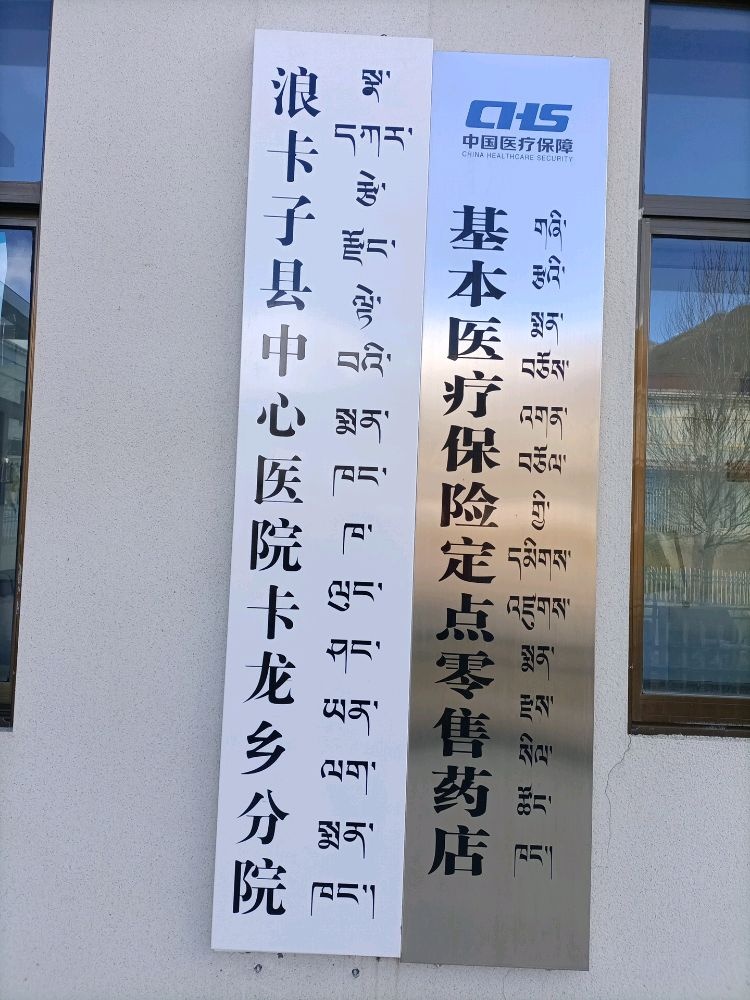 浪卡子县中心医院卡龙乡分院
སྣ་དཀར་རྩེ་རྫོང་ལྟེ་བའི་སྨན་ཁང་ཁ་ལུང་ཤང་ཡན་ལག་སྨན་ཁང་།
CHS
中国医疗保障
CHINA HEALTHCARE SECURITY
基本医疗保险定点零售药店
གཞི་རྩའི་སྨན་བཅོས་འགན་བཅོལ་གྱི་དམིགས་འཛུགས་སྨན་རྫས་སིལ་ཚོང་ཁང་།